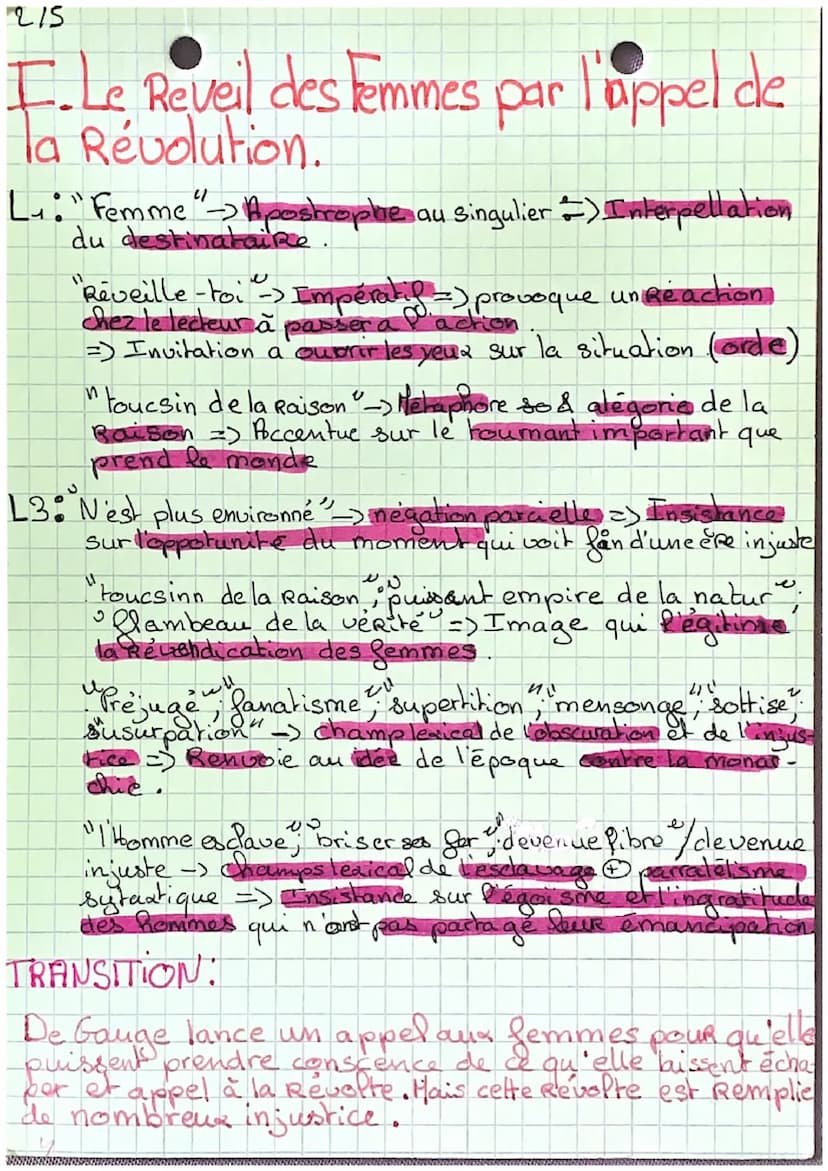 2/5
I. Le Reveil des Femmes par l'appel de
la Révolution.
L1: "Femme" -> Apostrophe au singulier => Interpellation
du destinataire.
"Réveille-toi" -> Impératif => provoque un Réaction
chez le lecteur à passer a l'action
=> Invitation a ouvrir les yeux sur la situation (orde)
"toucsin de la Raison" -> Métaphore & alégorie de la
Raison => Accentue sur le tournant important que
prend le monde
L3: "N'est plus environné" -> négation parcielle => Insistance
sur l'oppotunité du moment qui voit fin d'une ère injuste
"toucsinn de la Raison"; "puissant empire de la natur";
"flambeau de la vérité" => Image qui légitime
la Révendication des femmes.
"Préjugé"; "fanatisme"; "supertition"; "mensonge"; "sottise";
"usurpation" -> champ lexical de l'obscuration et de l'injus-
tice => Renvoie au idée de l'époque contre la monar-
chie.
"l'Homme esclave"; "briser ses fer"; "devenue libre"/devenue
injuste -> champs lexical de l'esclavage + parralélisme
sytaxtique => Insistance sur l'égoïsme et l'ingratitude
des hommes qui n'ont pas partagé leur émancipation
TRANSITION:
De Gouge lance un appel aux femmes pour qu'elle
puissent prendre conscence de ce qu'elle laissent écha-
per et appel à la Révolte. Mais cette Révolte est Remplie
de nombreux injustice.